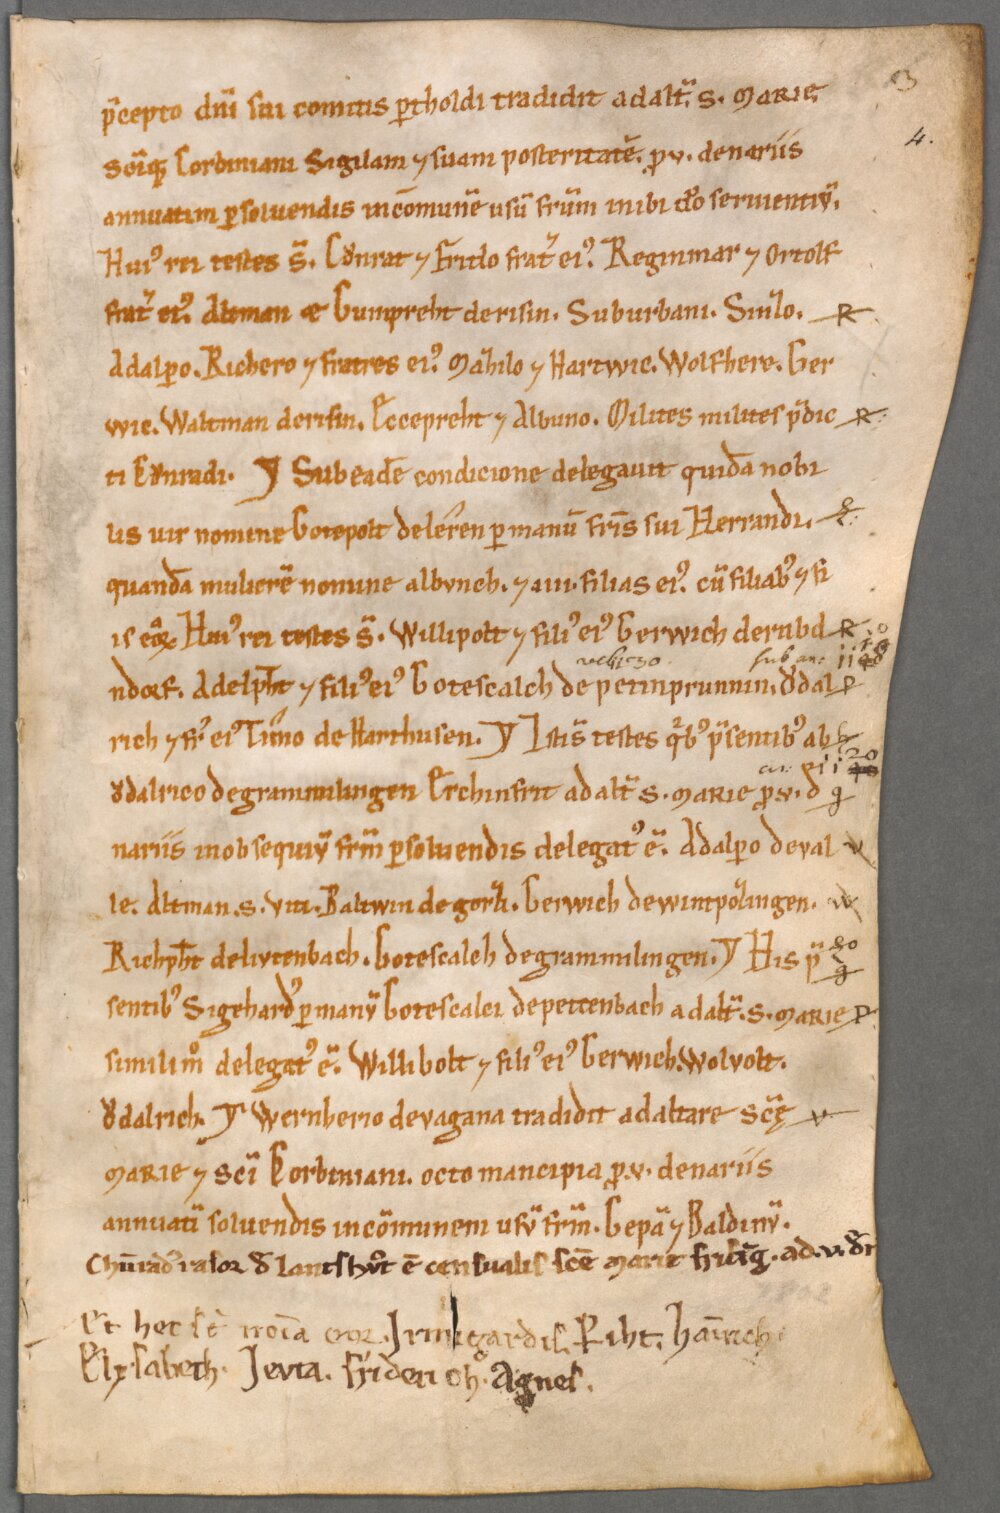 3
4.
p̄cepto dn̄i sui comitis ꝑtholdi tradidit ad alt̄. S. MARIE
Scīq; Corbiniani Sigilam ⁊ suam posteritatē. ꝓ .v. denariis
annuatim ꝑsoluendis in cōmunē usū frūm inibi dō seruientiū.
Huiꝰ rei testes s̄. Cŏnrat ⁊ Frido frat̄ eiꝰ. Reginmar ⁊ Ortolf
frat̄ eiꝰ. Altman & Gumpreht de rifin. Suburbani. Smilo. R
Adalꝑo. Richero ⁊ fratres eiꝰ. Mahilo ⁊ Hartwic. Wolfhere. Ger
wic. Waltman de rifin. Eccepreht ⁊ Albuno. Milites milites p̄dic R
ti Cŏnradi. Sub eadē condicione delegauit quidā nobi
lis uir nomine Gotepolt de leren ꝑ manū frīs sui Herrandi.
quandā mulierē nomine albvnch. ⁊ .iiii. filias eiꝰ. cū filiabꝰ ⁊ fi
is eoꝝ. Huiꝰ rei testes s̄. Willipolt ⁊ filiꝰ eiꝰ Gerwich de rubd R
ndorf. Adelpħt ⁊ filiꝰ eiꝰ Gotescalch de perinprunnin. Ŏdal
rich ⁊ fr̄ eiꝰ Timo de Harthusen. Istis testes q̄bꝰ p̄sentibꝰ ab
ŏdalrico de grammilingen Erchinfrit ad alt̄ S. MARIE ꝓ .v. d
nariis in obsequiū frm̄ ꝑsoluendis delegatꝰ ē. Adalꝑo de val
le. Altman. s. viti. Baltwin de gorh. Gerwich de wintpolingen.
Richpħt de livtenbach. Gotescalch de grammilingen. His p̄
sentibꝰ Sigehardꝰ ꝑ manū Gotescalci de pettenbach ad alt̄. S. MARIE
similim̊ delegatꝰ ē. Willibolt ⁊ filiꝰ eiꝰ Gerwich. Wolvolt.
Ŏdalrich. Wernherio de vagana tradidit ad altare Scę̄
MARIE ⁊ Scī Corbiniani. octo mancipia ꝓ .v. denariis
annuatī soluendis in cōmunem usū frm̄. Gepā ⁊ Baldinū.
Chūradꝰ rasor d̄ lantshůt ē censualis scē Marie frisīg. ad .v. dn̄
Et hec st̄ noīa eoꝝ. Irmlgardis. Riht. Hainrich
Elysabeth. Jevta. Friderich. Agnes.